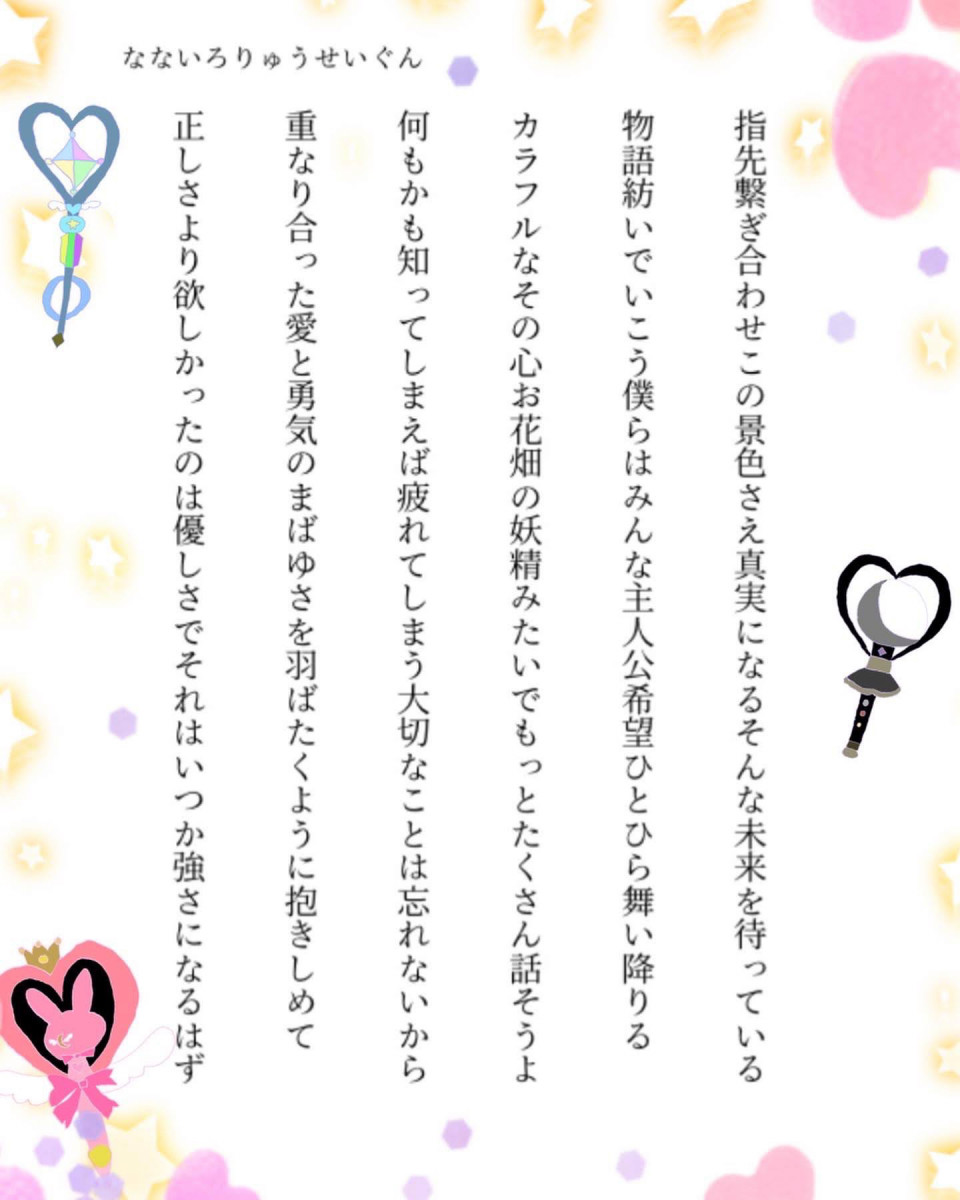 なないろりゅうせいぐん
指先繋ぎ合わせこの景色さえ真実になるそんな未来を待っている
物語紡いでいこう僕らはみんな主人公希望ひとひら舞い降りる
カラフルなその心お花畑の妖精みたいでもっとたくさん話そうよ
何もかも知ってしまえば疲れてしまう大切なことは忘れないから
重なり合った愛と勇気のまばゆさを羽ばたくように抱きしめて
正しさより欲しかったのは優しさでそれはいつか強さになるはず